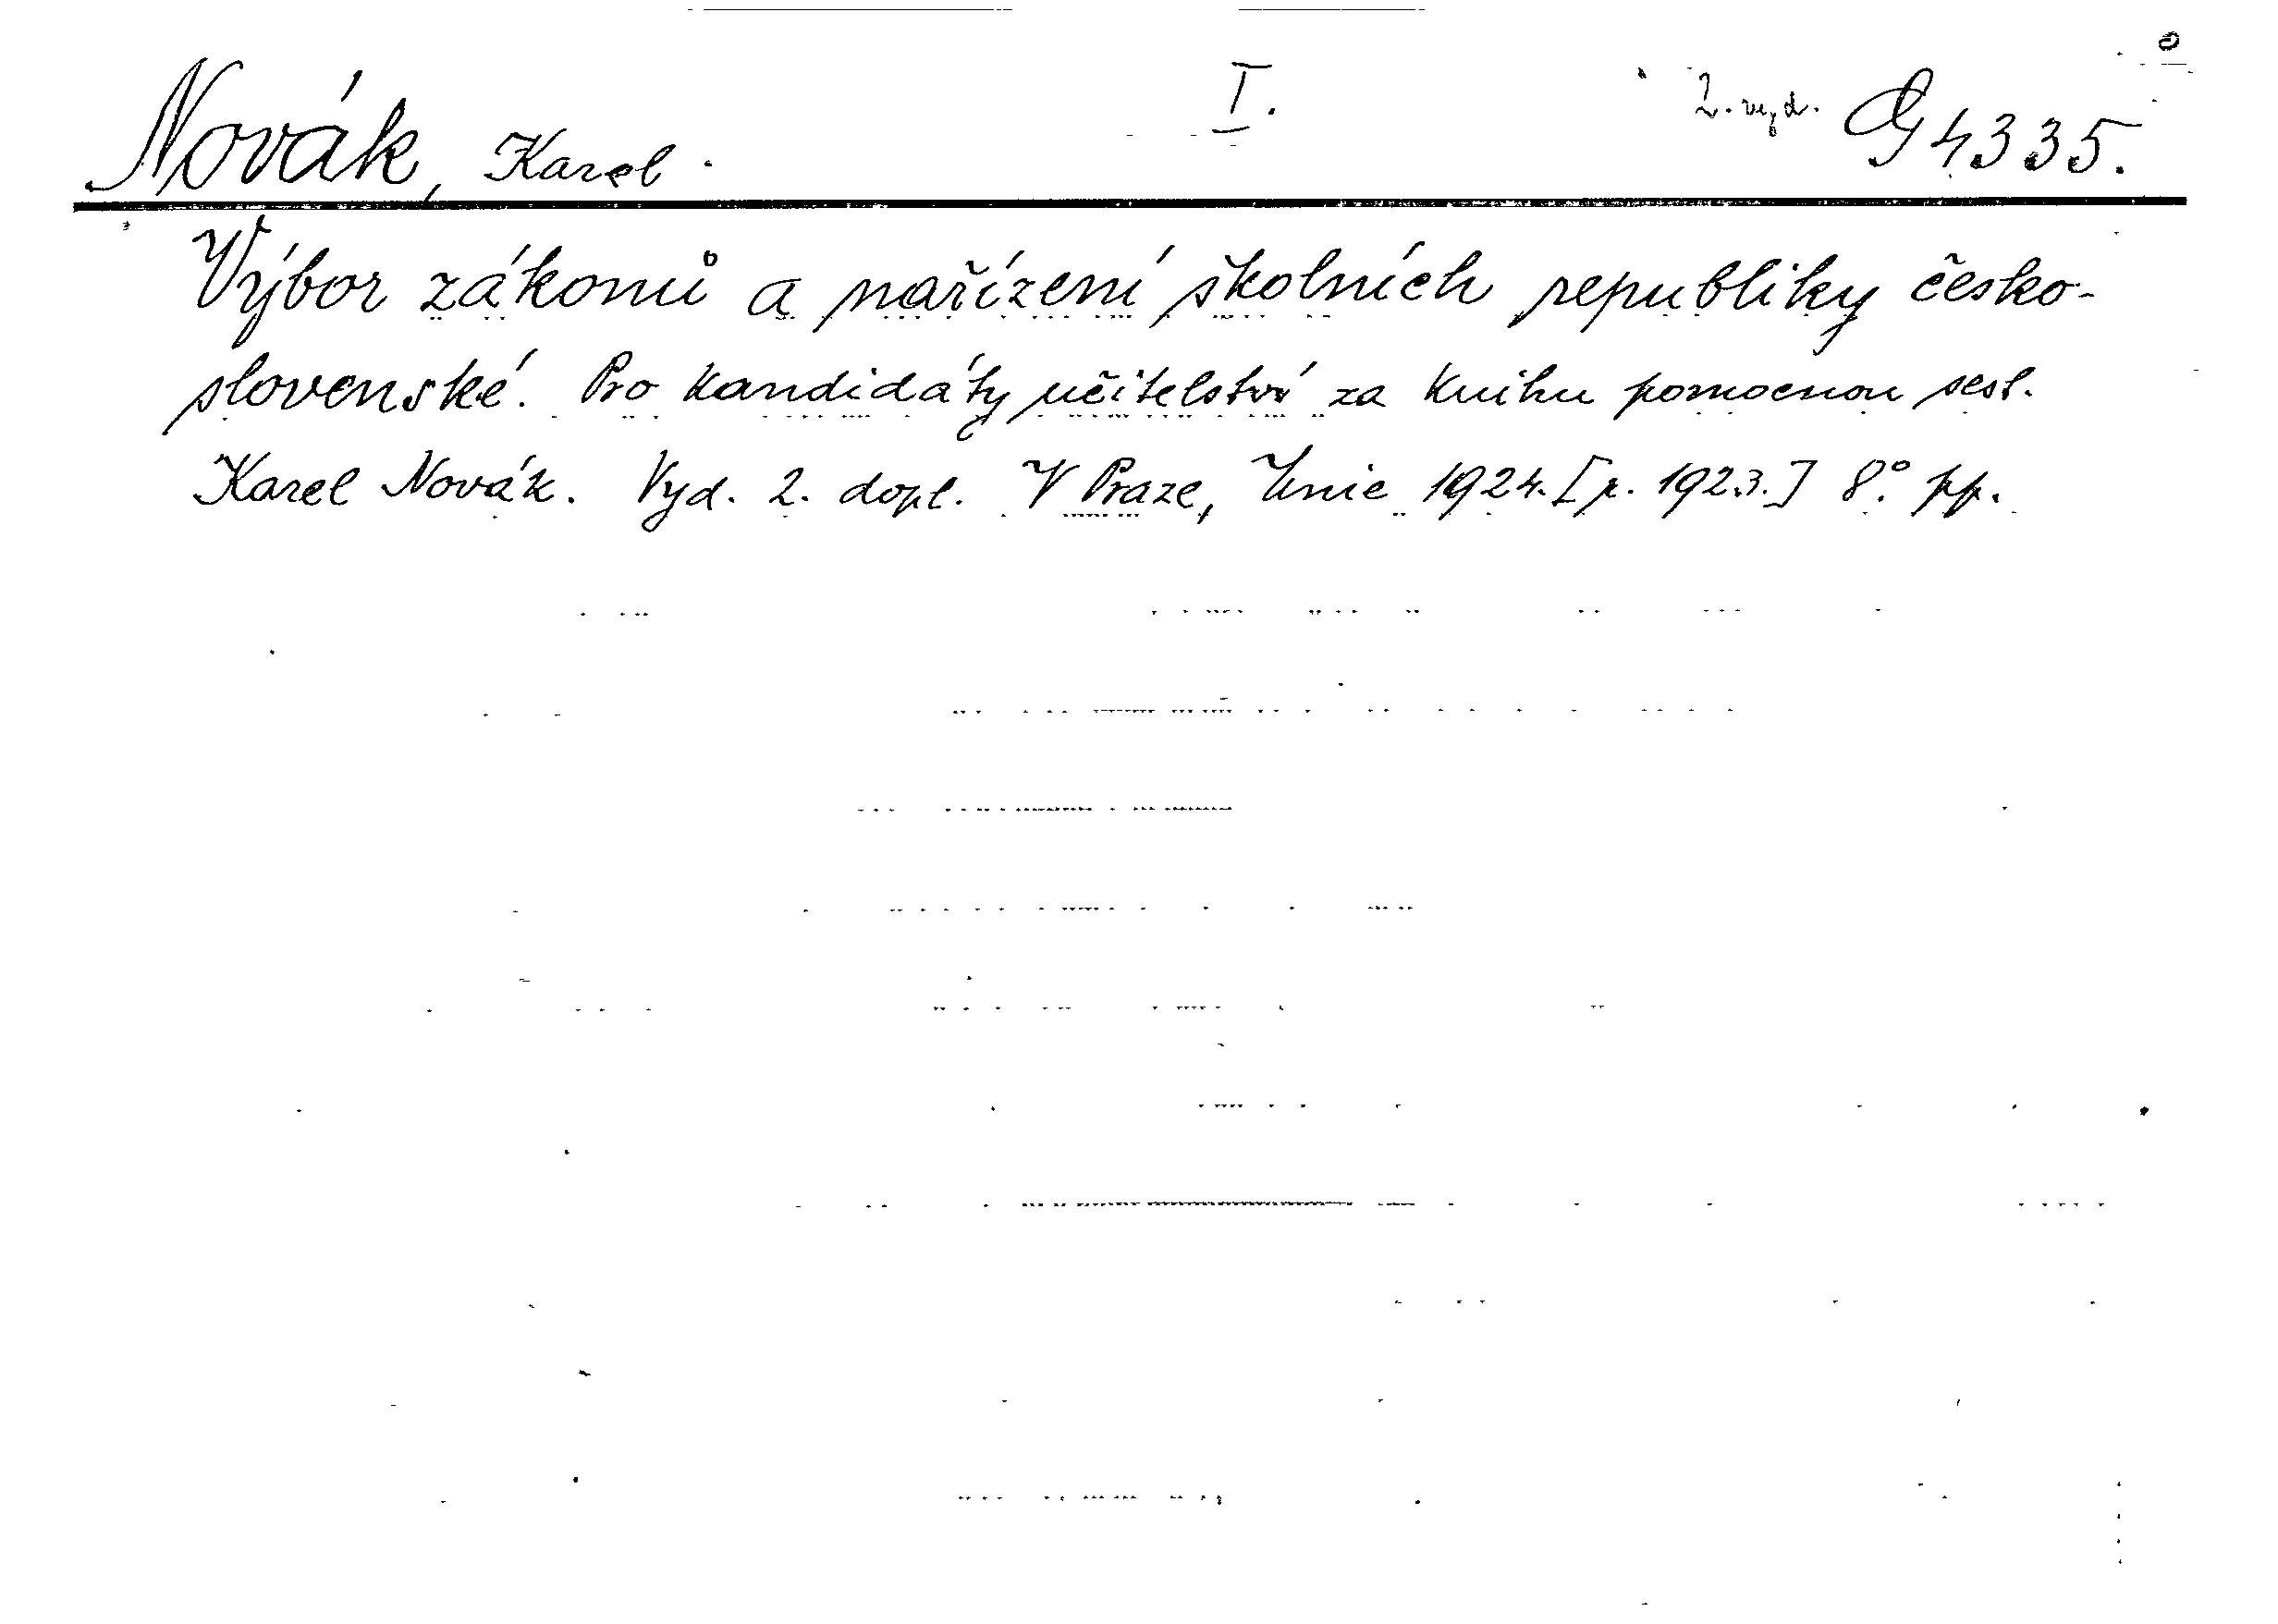 Novák, Karel. I. 2. vyd. G 4335.
Výbor zákonů a nařízení školních republiky česko-
slovenské. Pro kandidáty učitelství za knihu pomocnou sest.
Karel Novák. Vyd. 2. dopl. V Praze, Unie 1924. [p. 1923.] 8°. pp.